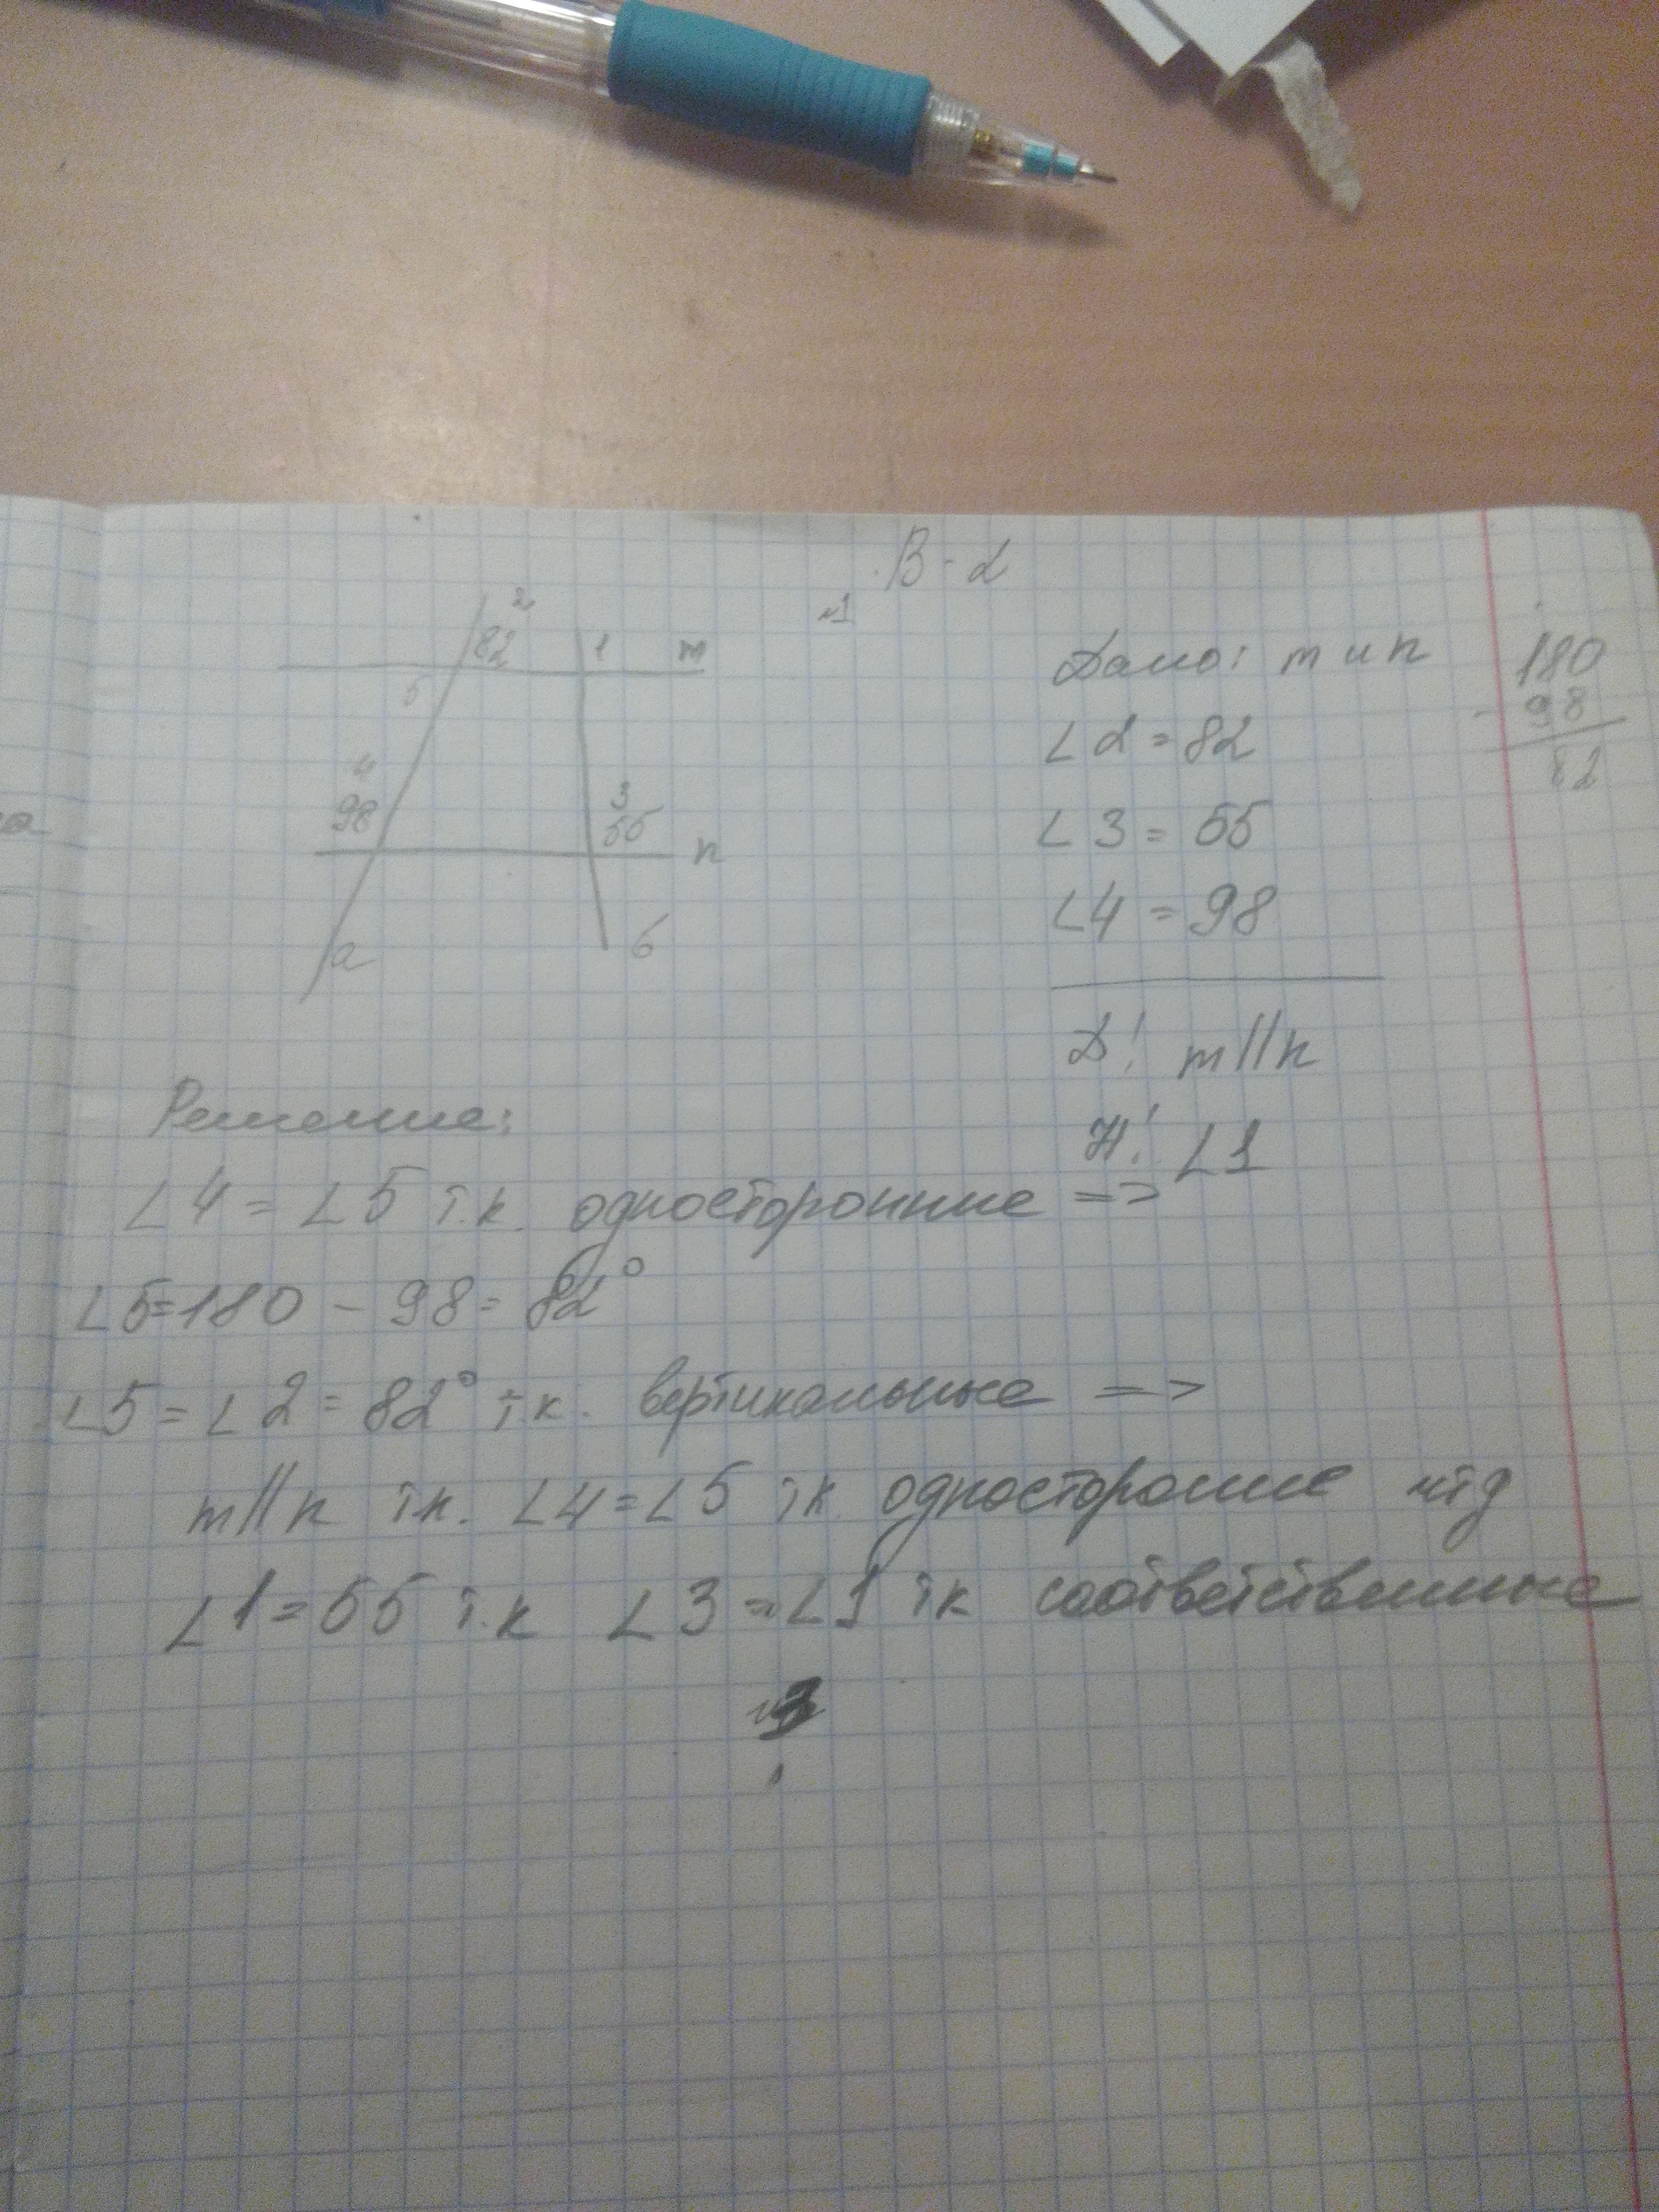 В-2
№1
2
82 1 m
5
4
98
3
55
n
a б
Дано: m и n
∠2=82
∠3=55
∠4=98
Д! m||n
Н! ∠1
180
- 98
82
Решение:
∠4=∠5 т.к. односторонние =>
∠5=180-98=82°
∠5=∠2=82° т.к. вертикальные =>
m||n т.к. ∠4=∠5 тк. односторонние чтд
∠1=55 т.к ∠3=∠1 тк соответственные
№3